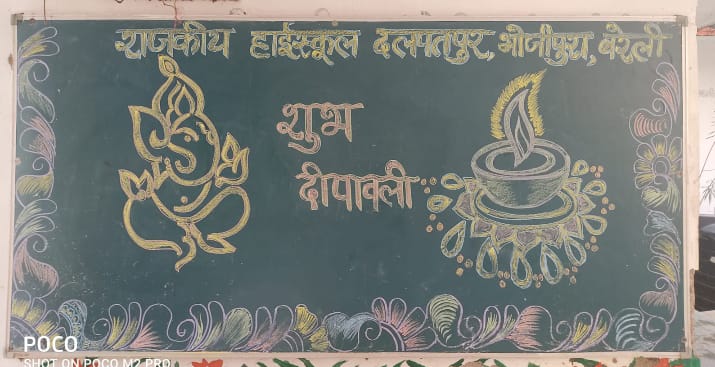 राजकीय हाईस्कूल दलपतपुर, भोजीपुरा, बरेली
शुभ
दीपावली
POCO
SHOT ON POCO M2 PRO